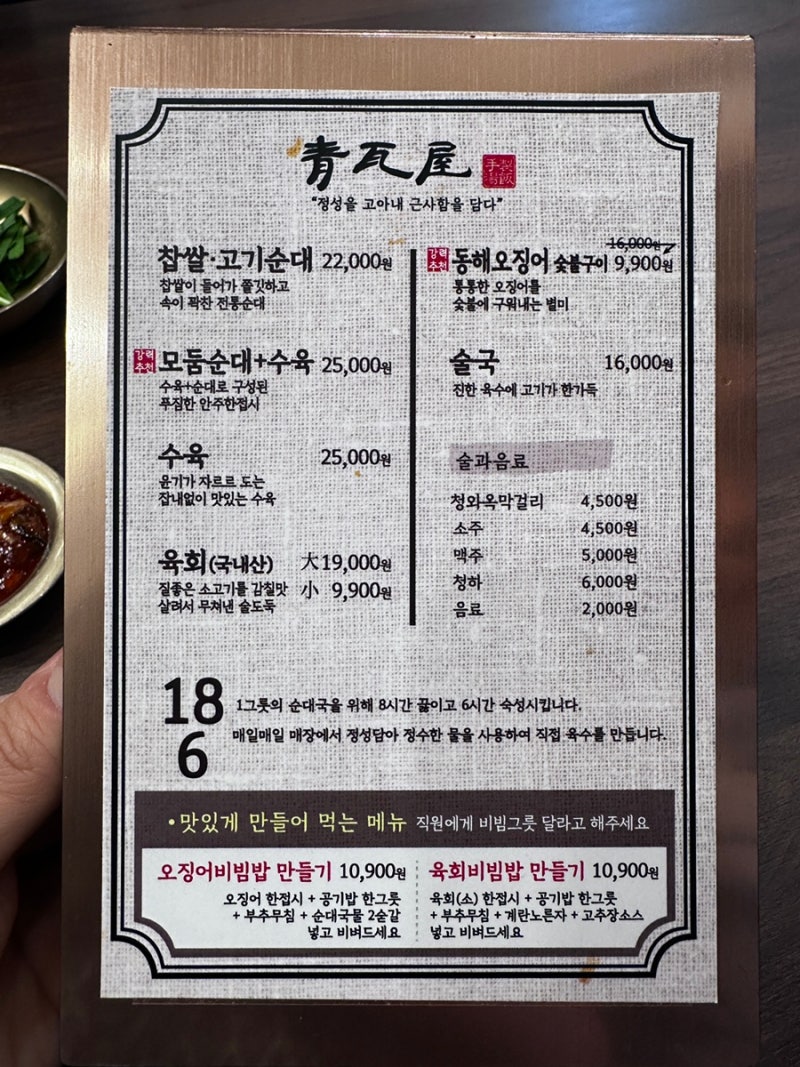 青瓦屋
手製
湯飯
"정성을 고아내 근사함을 담다"
찹쌀·고기순대 22,000원
찹쌀이 들어가 쫄깃하고
속이 꽉찬 전통순대
강력
추천
모둠순대+수육 25,000원
수육+순대로 구성된
푸짐한 안주한접시
수육 25,000원
윤기가 자르르 도는
잡내없이 맛있는 수육
육회(국내산) 大19,000원
질좋은 소고기를 감칠맛 小 9,900원
살려서 무쳐낸 술도둑
16,000원
강력
추천
동해오징어 숯불구이 9,900원
통통한 오징어를
숯불에 구워내는 별미
술국 16,000원
진한 육수에 고기가 한가득
술과음료
청와옥막걸리 4,500원
소주 4,500원
맥주 5,000원
청하 6,000원
음료 2,000원
18
6
1그릇의 순대국을 위해 8시간 끓이고 6시간 숙성시킵니다.
매일매일 매장에서 정성담아 정수한 물을 사용하여 직접 육수를 만듭니다.
•맛있게 만들어 먹는 메뉴 직원에게 비빔그릇 달라고 해주세요
오징어비빔밥 만들기 10,900원
오징어 한접시 + 공기밥 한그릇
+ 부추무침 + 순대국물 2숟갈
넣고 비벼드세요
육회비빔밥 만들기 10,900원
육회(소) 한접시 + 공기밥 한그릇
+ 부추무침 + 계란노른자 + 고추장소스
넣고 비벼드세요